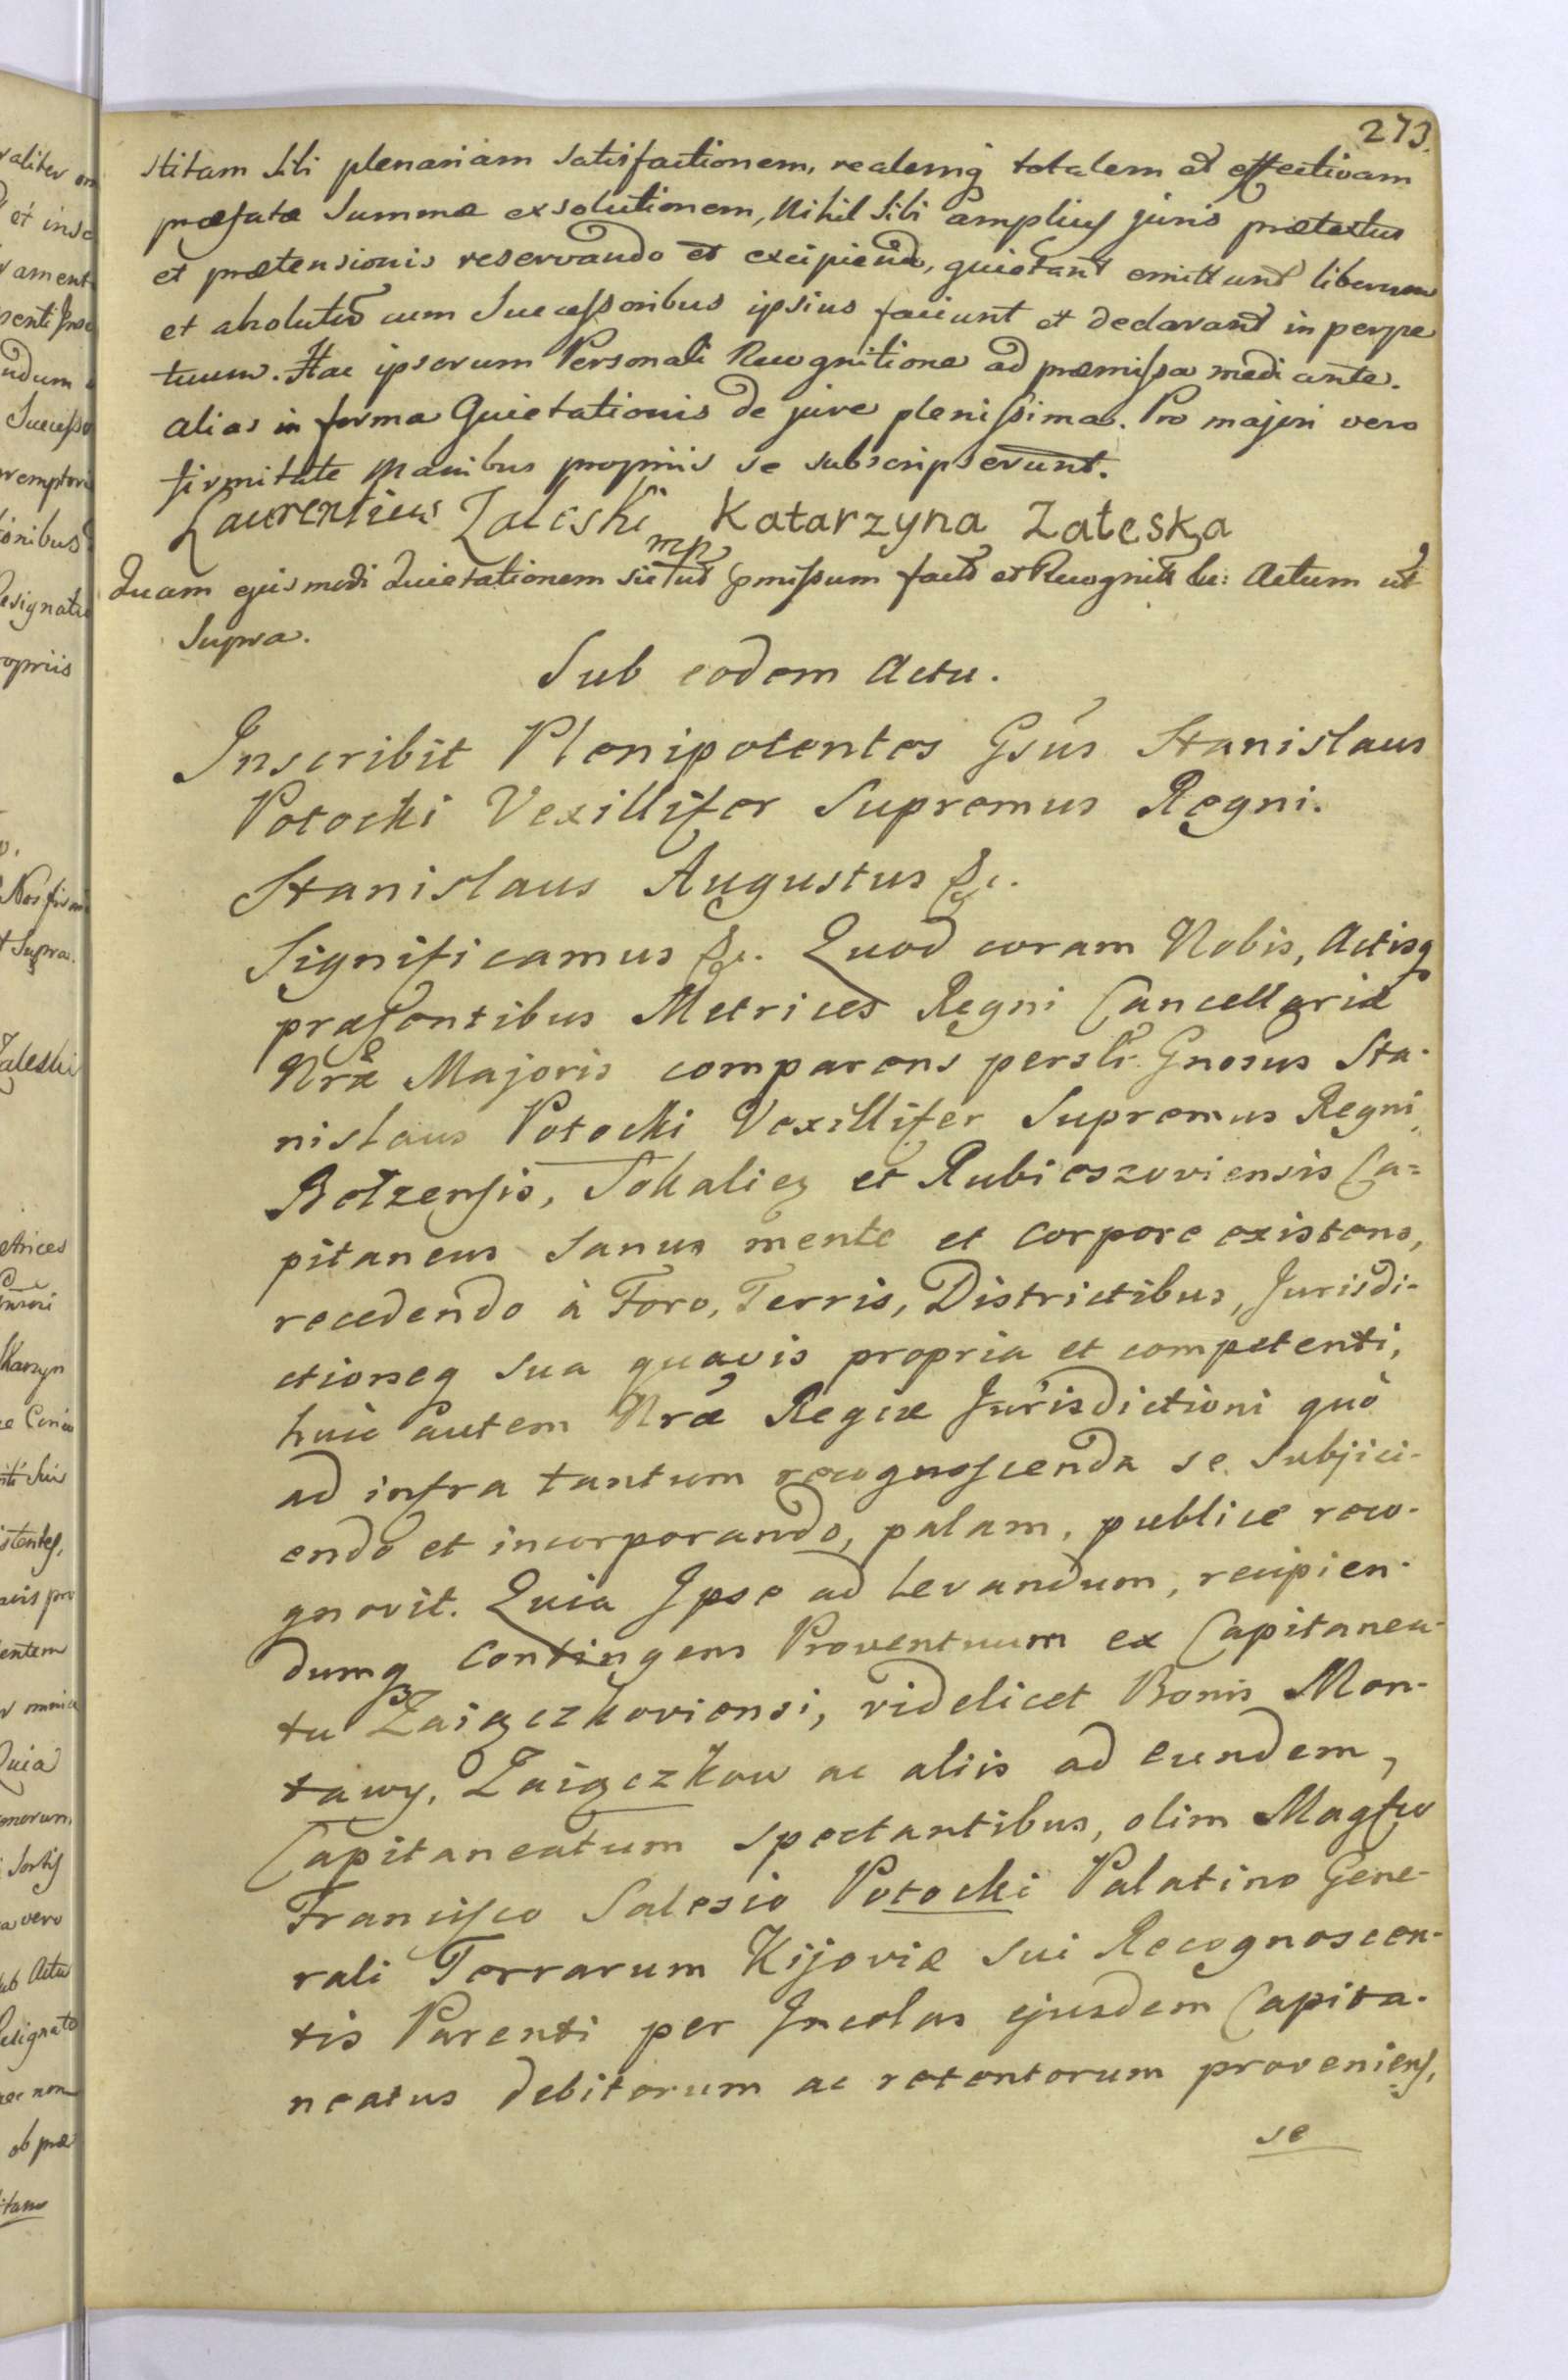 273.
stitam sibi plenariam satisfactionem, realemq totalem et effectivam
præfatæ summæ exsolutionem, Nihil sibi amplius juris prætextus
et prætensionis reservando et excipiend, quietant emittunt liberum
et absolutum cum Successoribus ipsius faciunt et declarant in perpe
tuum. Hac ipsorum Personali Recognitione ad præmissa mediante.
alias in forma Quietationis de jure plenissima. Pro majori vero
firmitate Manibus propriis se subscripserunt.
Laurentius Zaleski Katarzyna Zaleska
mp
Quam ejusmodi Quietationem sic ut pmissum fact et Recognit &c: Actum ut
Supra.
Sub eodem Actu.
Inscribit Plenipotentes Gsus Stanislaus
Potocki Vexillifer Supremus Regni.
Stanislaus Augustus &c.
Significamus &c. Quod coram Nobis, Actisq
præsentibus Metrices Regni Cancellariæ
Nræ Majoris comparens perslr Gnosus Sta-
nislaus Potocki Vexillifer Supremus Regni,
Betzensis, Sokalieg et Rubieszoviensis Ca=
pitaneus sanus mente et corpore existens,
recedendo à Foro, Terris, Districtibus, Jurisdi-
ctioneq sua quavis propria et competenti,
huic autem Nræ Regiæ Jurisdictioni quò
ad infra tantum recognoscenda se subjici-
endo et incorporando, palam, publice reco-
gnovit. Quia Ipse ad levandum, recipien-
dumq contingens Proventuum ex Capitanea-
tu Zaigczkoviensi, videlicet Bonis Mon-
tawy, Zaigczkow ac aliis ad eundem,
Capitaneatum spectantibus, olim Magfco
Francisco Salesio Potocki Palatino Gene-
rali Terrarum Kijoviæ sui Recognoscen-
tis Parenti per Incolas ejusdem Capita-
neatus debitorum ac retentorum proveniens,
se